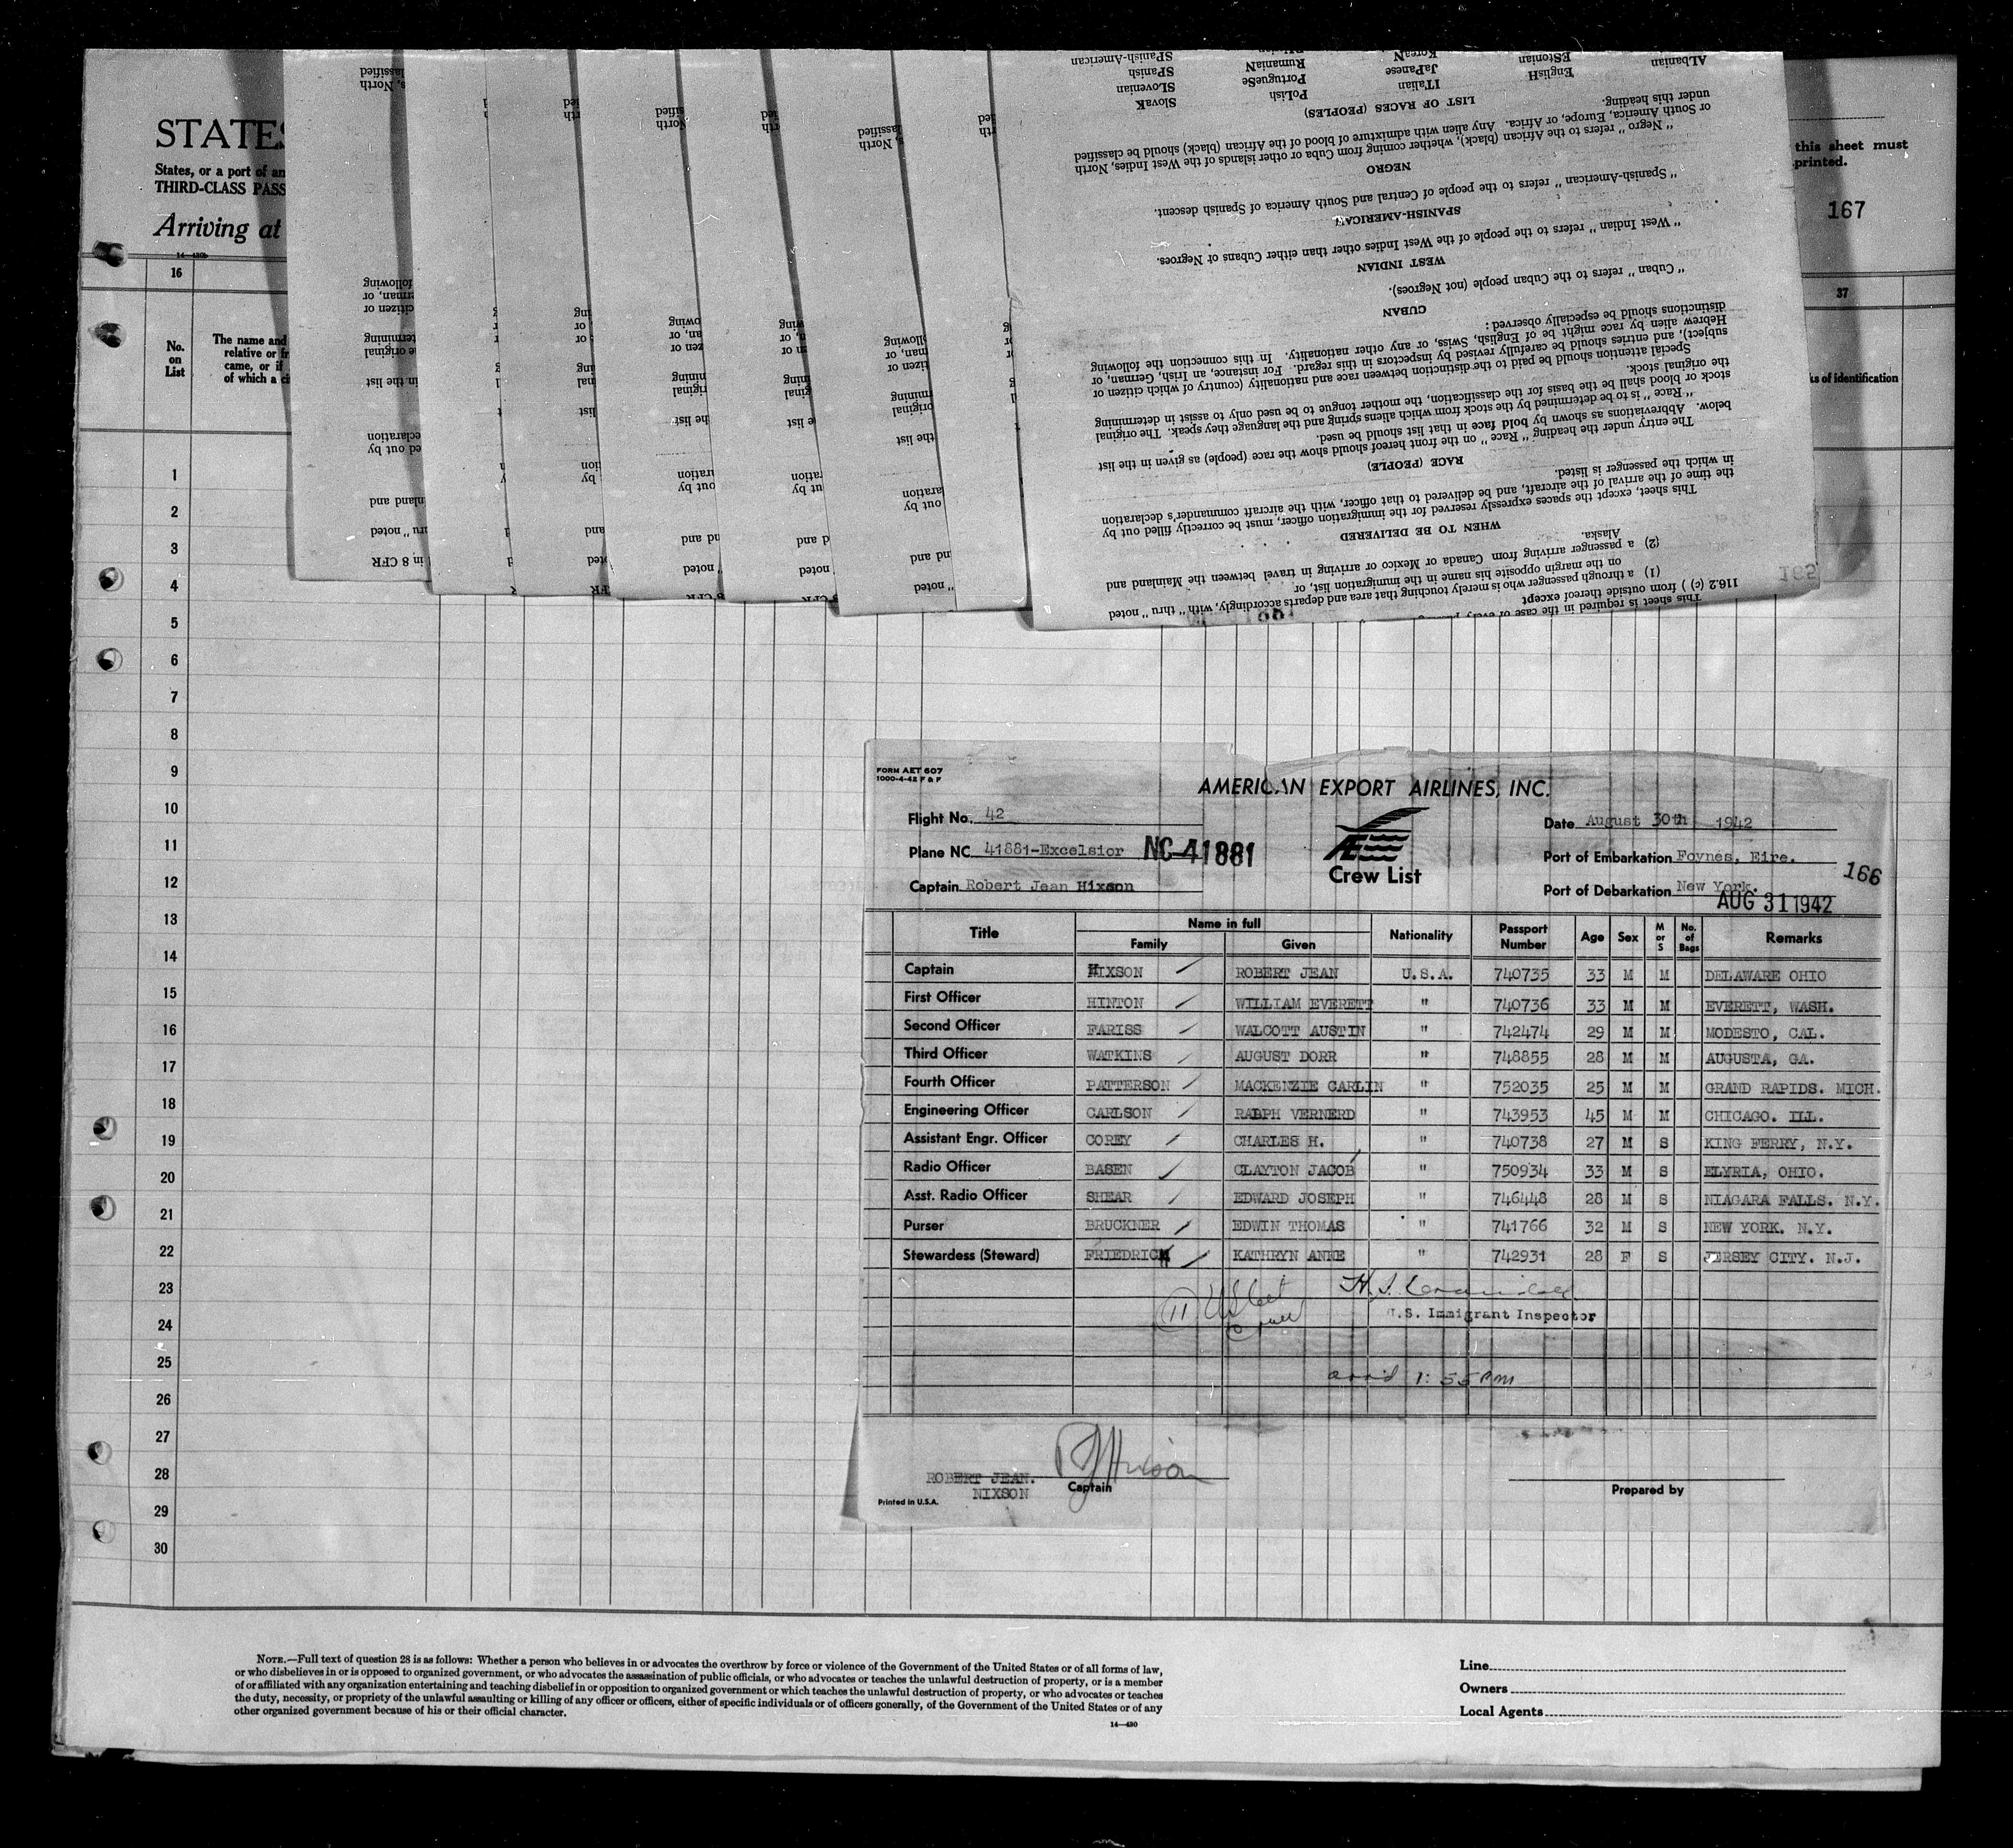 STATES
States, or a port of an
THIRD-CLASS PASS
Arriving at
14—430b
this sheet must
printed.
167
16
37
No.
on
List
The name and
relative or fr
came, or if
of which a ci
ks of identification
This sheet is required in the case of every
116.2 (c) ) from outside thereof except
(1) a through passenger who is merely touching that area and departs accordingly, with "thru" noted
on the margin opposite his name in the immigration list, or
(2) a passenger arriving from Canada or Mexico or arriving in travel between the Mainland and
Alaska.
WHEN TO BE DELIVERED
This sheet, except the spaces expressly reserved for the immigration officer, must be correctly filled out by
the time of the arrival of the aircraft, and be delivered to that officer, with the aircraft commander's declaration
in which the passenger is listed.
RACE (PEOPLE)
The entry under the heading "Race" on the front hereof should show the race (people) as given in the list
below. Abbreviations as shown by bold face in that list should be used.
"Race" is to be determined by the stock from which aliens spring and the language they speak. The original
stock or blood shall be the basis for the classification, the mother tongue to be used only to assist in determining
the original stock.
Special attention should be paid to the distinction between race and nationality (country of which citizen or
subject), and entries should be carefully revised by inspectors in this regard. For instance, an Irish, German, or
Hebrew alien by race might be of English, Swiss, or any other nationality. In this connection the following
distinctions should be especially observed:
CUBAN
"Cuban" refers to the Cuban people (not Negroes).
WEST INDIAN
"West Indian" refers to the people of the West Indies other than either Cubans or Negroes.
SPANISH-AMERICAN
"Spanish-American" refers to the people of Central and South America of Spanish descent.
NEGRO
"Negro" refers to the African (black), whether coming from Cuba or other islands of the West Indies, North
or South America, Europe, or Africa. Any alien with admixture of blood of the African (black) should be classified
under this heading.
LIST OF RACES (PEOPLES)
ALbanian EngliSH ITalian PoLish SlovaK
EStonian JaPanese PortugueSe SLOvenian
KoreaN RumaniaN SPaniSh
SPanish-American
1
2
3
4
5
6
7
8
9
10
11
12
13
14
15
16
17
18
19
20
21
22
23
24
25
26
27
28
29
30
FORM AET 607
1000-4-42 F & F
AMERICAN EXPORT AIRLINES, INC.
Flight No. 42
Date August 30th 1942
Plane NC 41881-Excelsior NC-41881
Port of Embarkation Foynes, Eire.
166
Captain Robert Jean Hixson
Crew List
Port of Debarkation New York.
AUG 31 1942
Title Name in full Nationality Passport Number Age Sex M or S No. of Bags Remarks
Family Given
Captain HIXSON ROBERT JEAN U.S.A. 740735 33 M M DELAWARE OHIO
First Officer HINTON WILLIAM EVERETT " 740736 33 M M EVERETT, WASH.
Second Officer FARISS WALCOTT AUSTIN " 742474 29 M M MODESTO, CAL.
Third Officer WATKINS AUGUST DORR " 748855 28 M M AUGUSTA, GA.
Fourth Officer PATTERSON MACKENZIE CARLIN " 752035 25 M M GRAND RAPIDS. MICH.
Engineering Officer CARLSON RALPH VERNERD " 743953 45 M M CHICAGO. ILL.
Assistant Engr. Officer COREY CHARLES H. " 740738 27 M S KING FERRY, N.Y.
Radio Officer BASEN CLAYTON JACOB " 750934 33 M S ELYRIA, OHIO.
Asst. Radio Officer SHEAR EDWARD JOSEPH " 746448 28 M S NIAGARA FALLS. N.Y.
Purser BRUCKNER EDWIN THOMAS " 741766 32 M S NEW YORK. N.Y.
Stewardess (Steward) FRIEDRICH KATHRYN ANNE " 742931 28 F S JERSEY CITY. N.J.
11
U.S. Immigrant Inspector
arr'd 1:55 PM
RJHixson
ROBERT JEAN.
NIXSON
Captain
Prepared by
Printed in U.S.A.
NOTE.—Full text of question 28 is as follows: Whether a person who believes in or advocates the overthrow by force or violence of the Government of the United States or of all forms of law,
or who disbelieves in or is opposed to organized government, or who advocates the assassination of public officials, or who advocates or teaches the unlawful destruction of property, or is a member
of or affiliated with any organization entertaining and teaching disbelief in or opposition to organized government or which teaches the unlawful destruction of property, or who advocates or teaches
the duty, necessity, or propriety of the unlawful assaulting or killing of any officer or officers, either of specific individuals or of officers generally, of the Government of the United States or of any
other organized government because of his or their official character.
14—430
Line
Owners
Local Agents